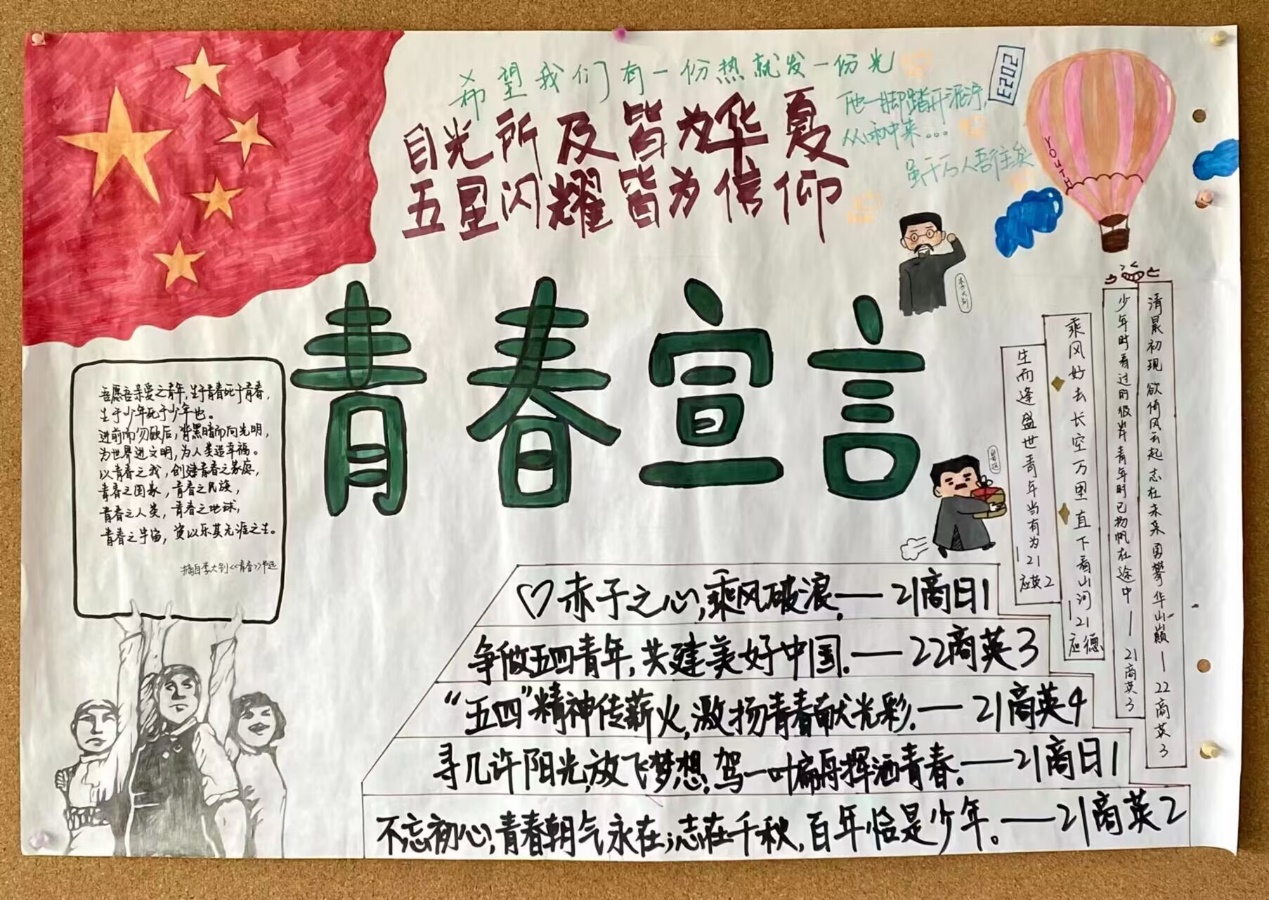 希望我们有一份热就发一份光
目光所及皆为华夏
五星闪耀皆为信仰
他一脚踏开泥泞,
从心冲来...
虽千万人吾往矣
2023
YOUTH
李大钊
青春宣言
吾愿吾亲爱之青年,生于青春死于青春,
生于少年死于少年也。
进前而勿顾后,背黑暗而向光明,
为世界进文明,为人类造幸福。
以青春之我,创建青春之家庭,
青春之国家,青春之民族,
青春之人类,青春之地球,
青春之宇宙,资以乐其无涯之生。
摘自李大钊《青春》节选
生而逢盛世青年当有为—21应英2
乘风好去长空万里直下看山河—21应德
少年时看过的彼岸青年时已扬帆在途中—21商英3
清晨初现欲倚风云起志在未来勇攀华山巅—22商英3
♡赤子之心,乘风破浪.—21商日1
争做五四青年,共建美好中国.—22商英3
“五四”精神传薪火,激扬青春献光彩.—21商英4
寻几许阳光,放飞梦想,驾一叶扁舟挥洒青春.—21商日1
不忘初心,青春朝气永在;志在千秋,百年恰是少年。—21商英2